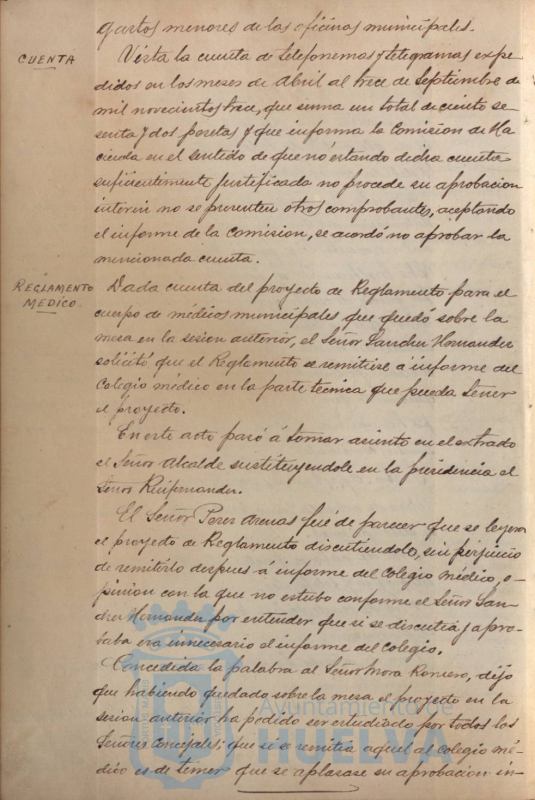 gastos menores de las oficinas municipales.
CUENTA
Vista la cuenta de telefonemas y telegramas expe
didos en los meses de Abril al trece de Septiembre de
mil novecientos trece, que suma un total de ciento se
senta y dos pesetas y que informa la Comision de Ha
cienda en el sentido de que no estando dicha cuenta
suficientemente justificada no procede su aprobacion
interin no se presenten otros comprobantes, aceptando
el informe de la Comision, se acordó no aprobar la
mencionada cuenta.
REGLAMENTO
MEDICO.
Dada cuenta del proyecto de Reglamento para el
cuerpo de médicos municipales que quedó sobre la
mesa en la sesion anterior, el Señor Sanchez Hernandez
solicitó que el Reglamento se remitiese á informe del
Colegio médico en la parte tecnica que pueda tener
el proyecto.
En este acto pasó á tomar asiento en el estrado
el Señor Alcalde sustituyendole en la presidencia el
Señor Ruifernandez.
El Señor Perez Arenas fué de parecer que se leyera
el proyecto de Reglamento discutiendolo, sin perjuicio
de remitirlo despues á informe del Colegio médico, o-
pinion con la que no estubo conforme el Señor San-
chez Hernandez por entender que si se discutia y apro-
baba era innecesario el informe del Colegio.
Concedida la palabra al Señor Mora Romero, dijo
que habiendo quedado sobre la mesa el proyecto en la
sesion anterior ha podido ser estudiado por todos los
Señores Concejales; que si se remitia aquel al Colegio mé-
dico es de temer que se aplazase su aprobacion in-
Ayuntamiento de
HUELVA